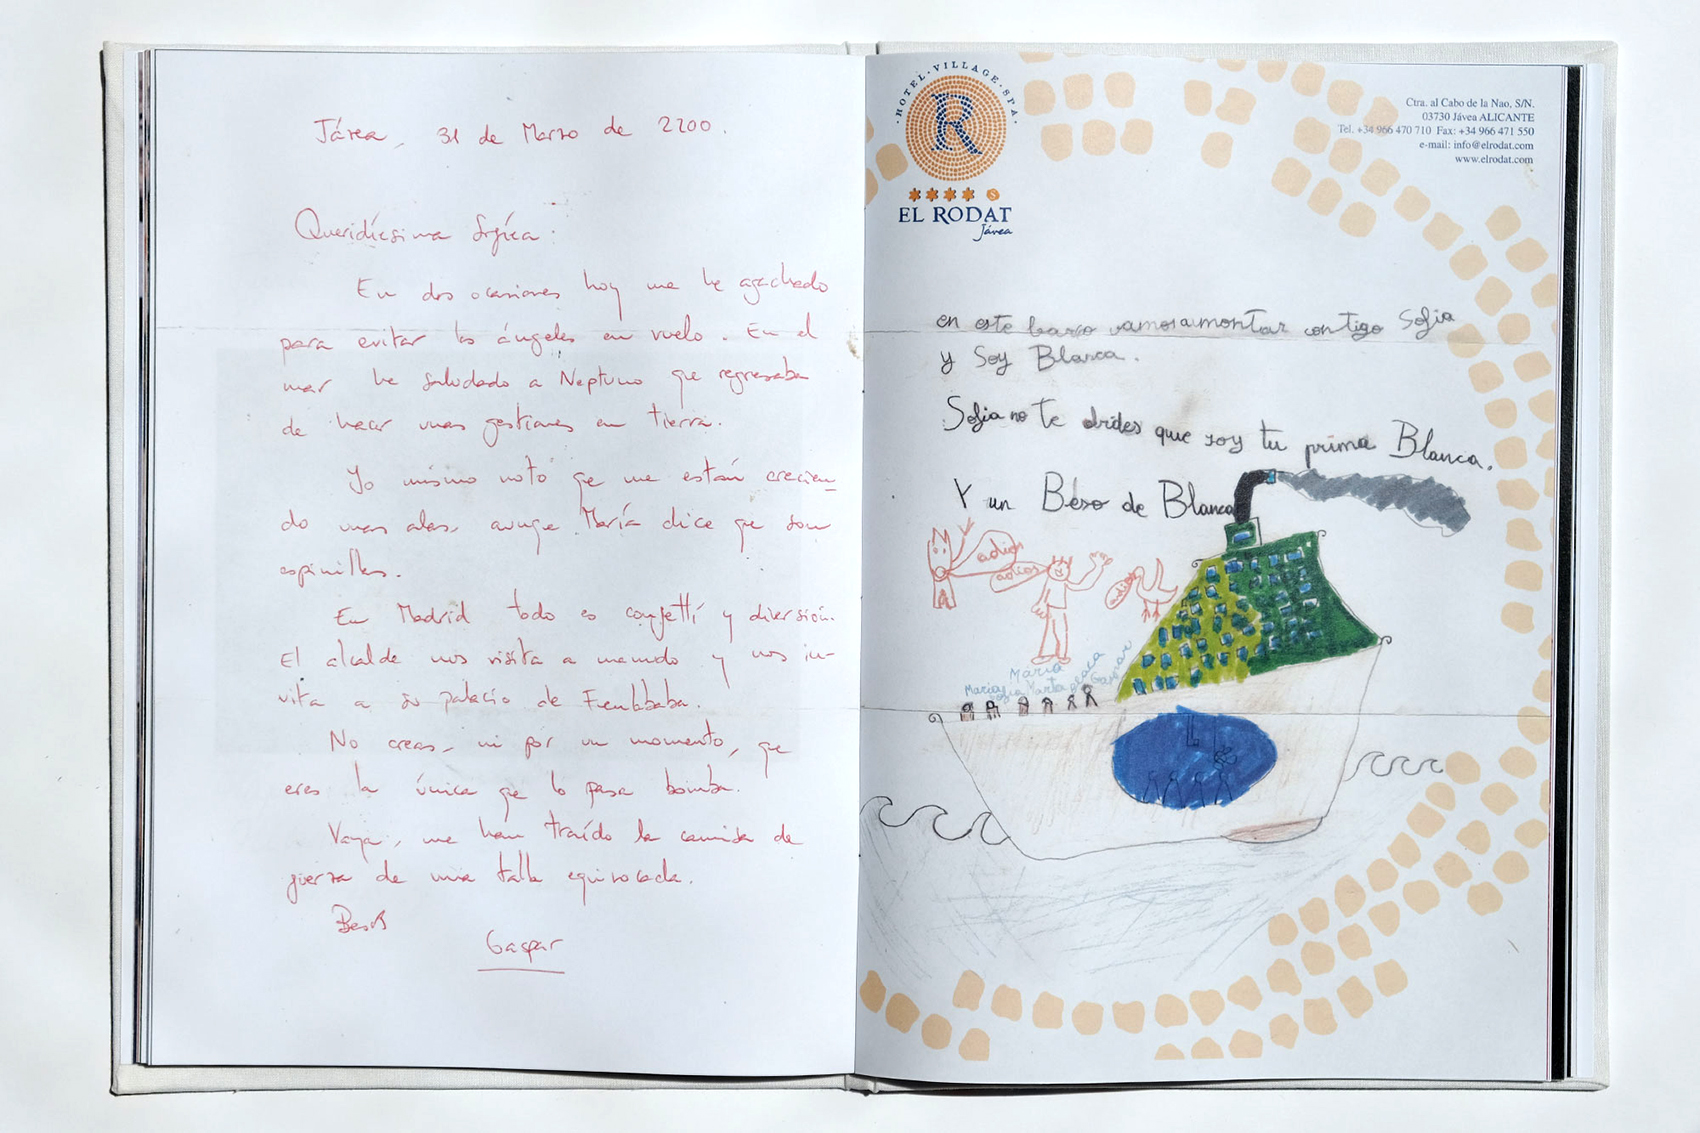 Jávea, 31 de Marzo de 2200.
Queridíesima Sofía:
En dos ocasiones hoy me he agachado
para evitar los ángeles en vuelo. En el
mar he saludado a Neptuno que regresaba
de hacer unas gestiones en tierra.
Yo mismo noto que me están crecien-
do unas alas, aunque María dice que son
espinillas.
En Madrid todo es confetti y diversión.
El alcalde nos visita a menudo y nos in-
vita a su palacio de
No creas, ni por un momento, que
eres la única que lo pasa bomba.
Vaya, me han traído la camisa de
fuerza de una talla equivocada.
Besos
Gaspar
HOTEL · VILLAGE · SPA
R
EL RODAT
Jávea
Ctra. al Cabo de la Nao, S/N.
03730 Jávea ALICANTE
Tel. +34 966 470 710 Fax: +34 966 471 550
e-mail: info@elrodat.com
www.elrodat.com
en este barco vamosamontar contigo Sofia
y Soy Blanca.
Sofia no te olvides que soy tu prima Blanca.
Y un Beso de Blanca
adios
adios
adios
María
María Marta Gaspar